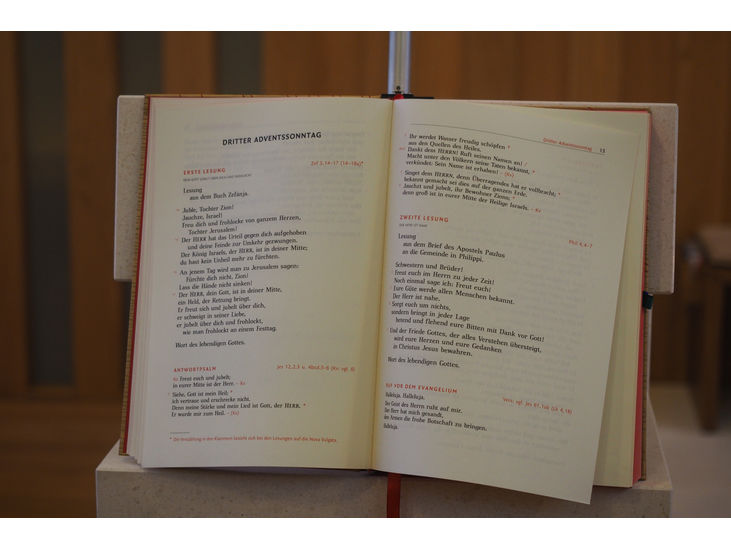 DRITTER ADVENTSSONNTAG
ERSTE LESUNG
Zef 3,14–17 (14–18a)*
Lesung
aus dem Buch Zefánja.
Juble, Tochter Zion!
Jauchze, Israel!
Freu dich und frohlocke von ganzem Herzen,
Tochter Jerusalem!
Der HERR hat das Urteil gegen dich aufgehoben
und deine Feinde zur Umkehr gezwungen.
Der König Israels, der HERR, ist in deiner Mitte;
du hast kein Unheil mehr zu fürchten.
An jenem Tag wird man zu Jerusalem sagen:
Fürchte dich nicht, Zion!
Lass die Hände nicht sinken!
Der HERR, dein Gott, ist in deiner Mitte,
ein Held, der Rettung bringt.
Er freut sich und jubelt über dich,
er schweigt in seiner Liebe,
er jubelt über dich und frohlockt,
wie man frohlockt an einem Festtag.
Wort des lebendigen Gottes.
ANTWORTPSALM
Jes 12,2.3 u. 4bcd.5–6 (Kv: vgl. 6)
Kv Freut euch und jubelt;
in eurer Mitte ist der Herr. – Kv
Siehe, Gott ist mein Heil; *
ich vertraue und erschrecke nicht.
Denn meine Stärke und mein Lied ist Gott, der HERR. *
Er wurde mir zum Heil. – (Kv)
* Die Verszählung in den Klammern bezieht sich bei den Lesungen auf die Nova Vulgata.
Dritter Adventssonntag 13
Ihr werdet Wasser freudig schöpfen *
aus den Quellen des Heiles.
Dankt dem HERRN! Ruft seinen Namen an! /
Macht unter den Völkern seine Taten bekannt, *
verkündet: Sein Name ist erhaben! – (Kv)
Singet dem HERRN, denn Überragendes hat er vollbracht; *
bekannt gemacht sei dies auf der ganzen Erde.
Jauchzt und jubelt, ihr Bewohner Zions; *
denn groß ist in eurer Mitte der Heilige Israels. – Kv
ZWEITE LESUNG
Phil 4,4–7
Lesung
aus dem Brief des Apostels Paulus
an die Gemeinde in Philíppi.
Schwestern und Brüder!
Freut euch im Herrn zu jeder Zeit!
Noch einmal sage ich: Freut euch!
Eure Güte werde allen Menschen bekannt.
Der Herr ist nahe.
Sorgt euch um nichts,
sondern bringt in jeder Lage
betend und flehend eure Bitten mit Dank vor Gott!
Und der Friede Gottes, der alles Verstehen übersteigt,
wird eure Herzen und eure Gedanken
in Christus Jesus bewahren.
Wort des lebendigen Gottes.
RUF VOR DEM EVANGELIUM
Vers: vgl. Jes 61,1ab (Lk 4,18)
Halleluja. Halleluja.
Der Geist des Herrn ruht auf mir.
Der Herr hat mich gesandt,
den Armen die frohe Botschaft zu bringen.
Halleluja.